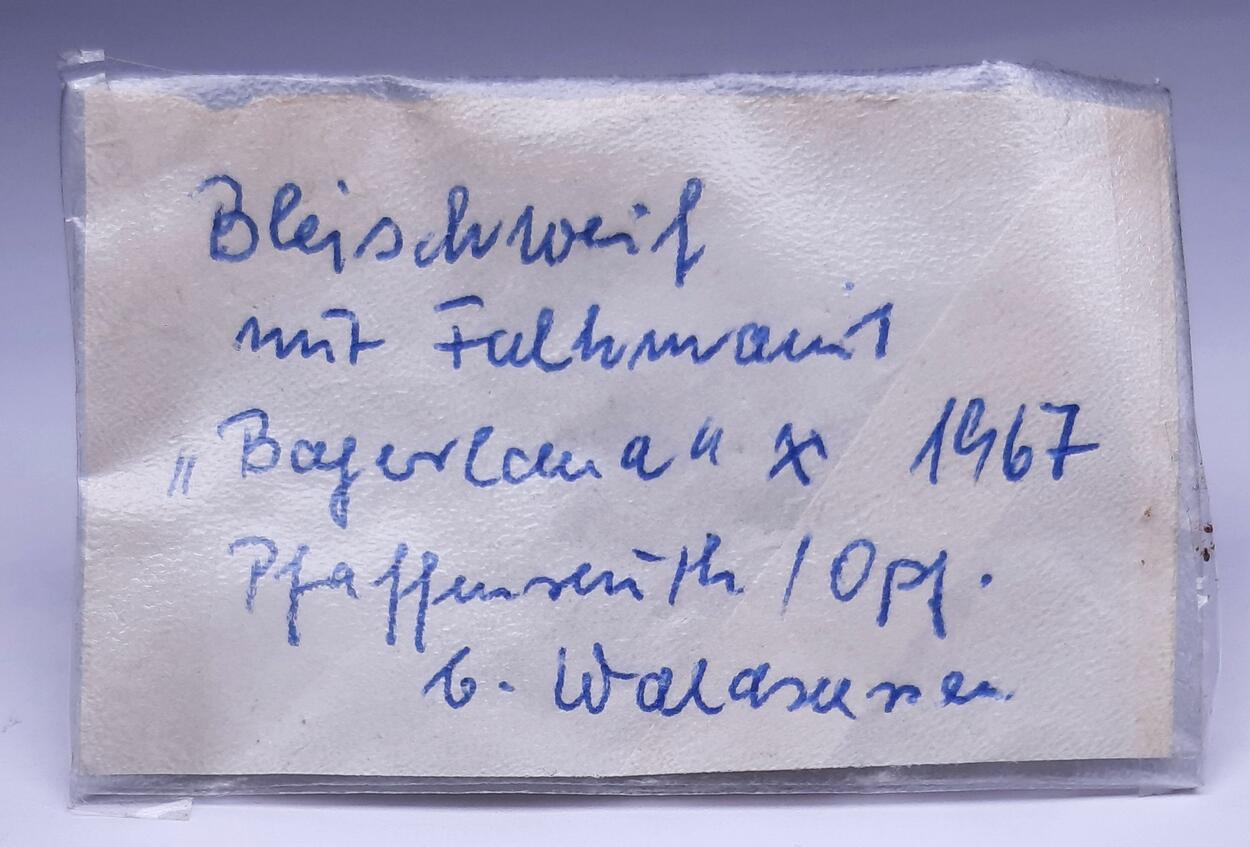 Bleischweif
mit Falkmanit
„Bayerland“ x 1967
Pfaffenreuth / Opf.
b. Waldsassen